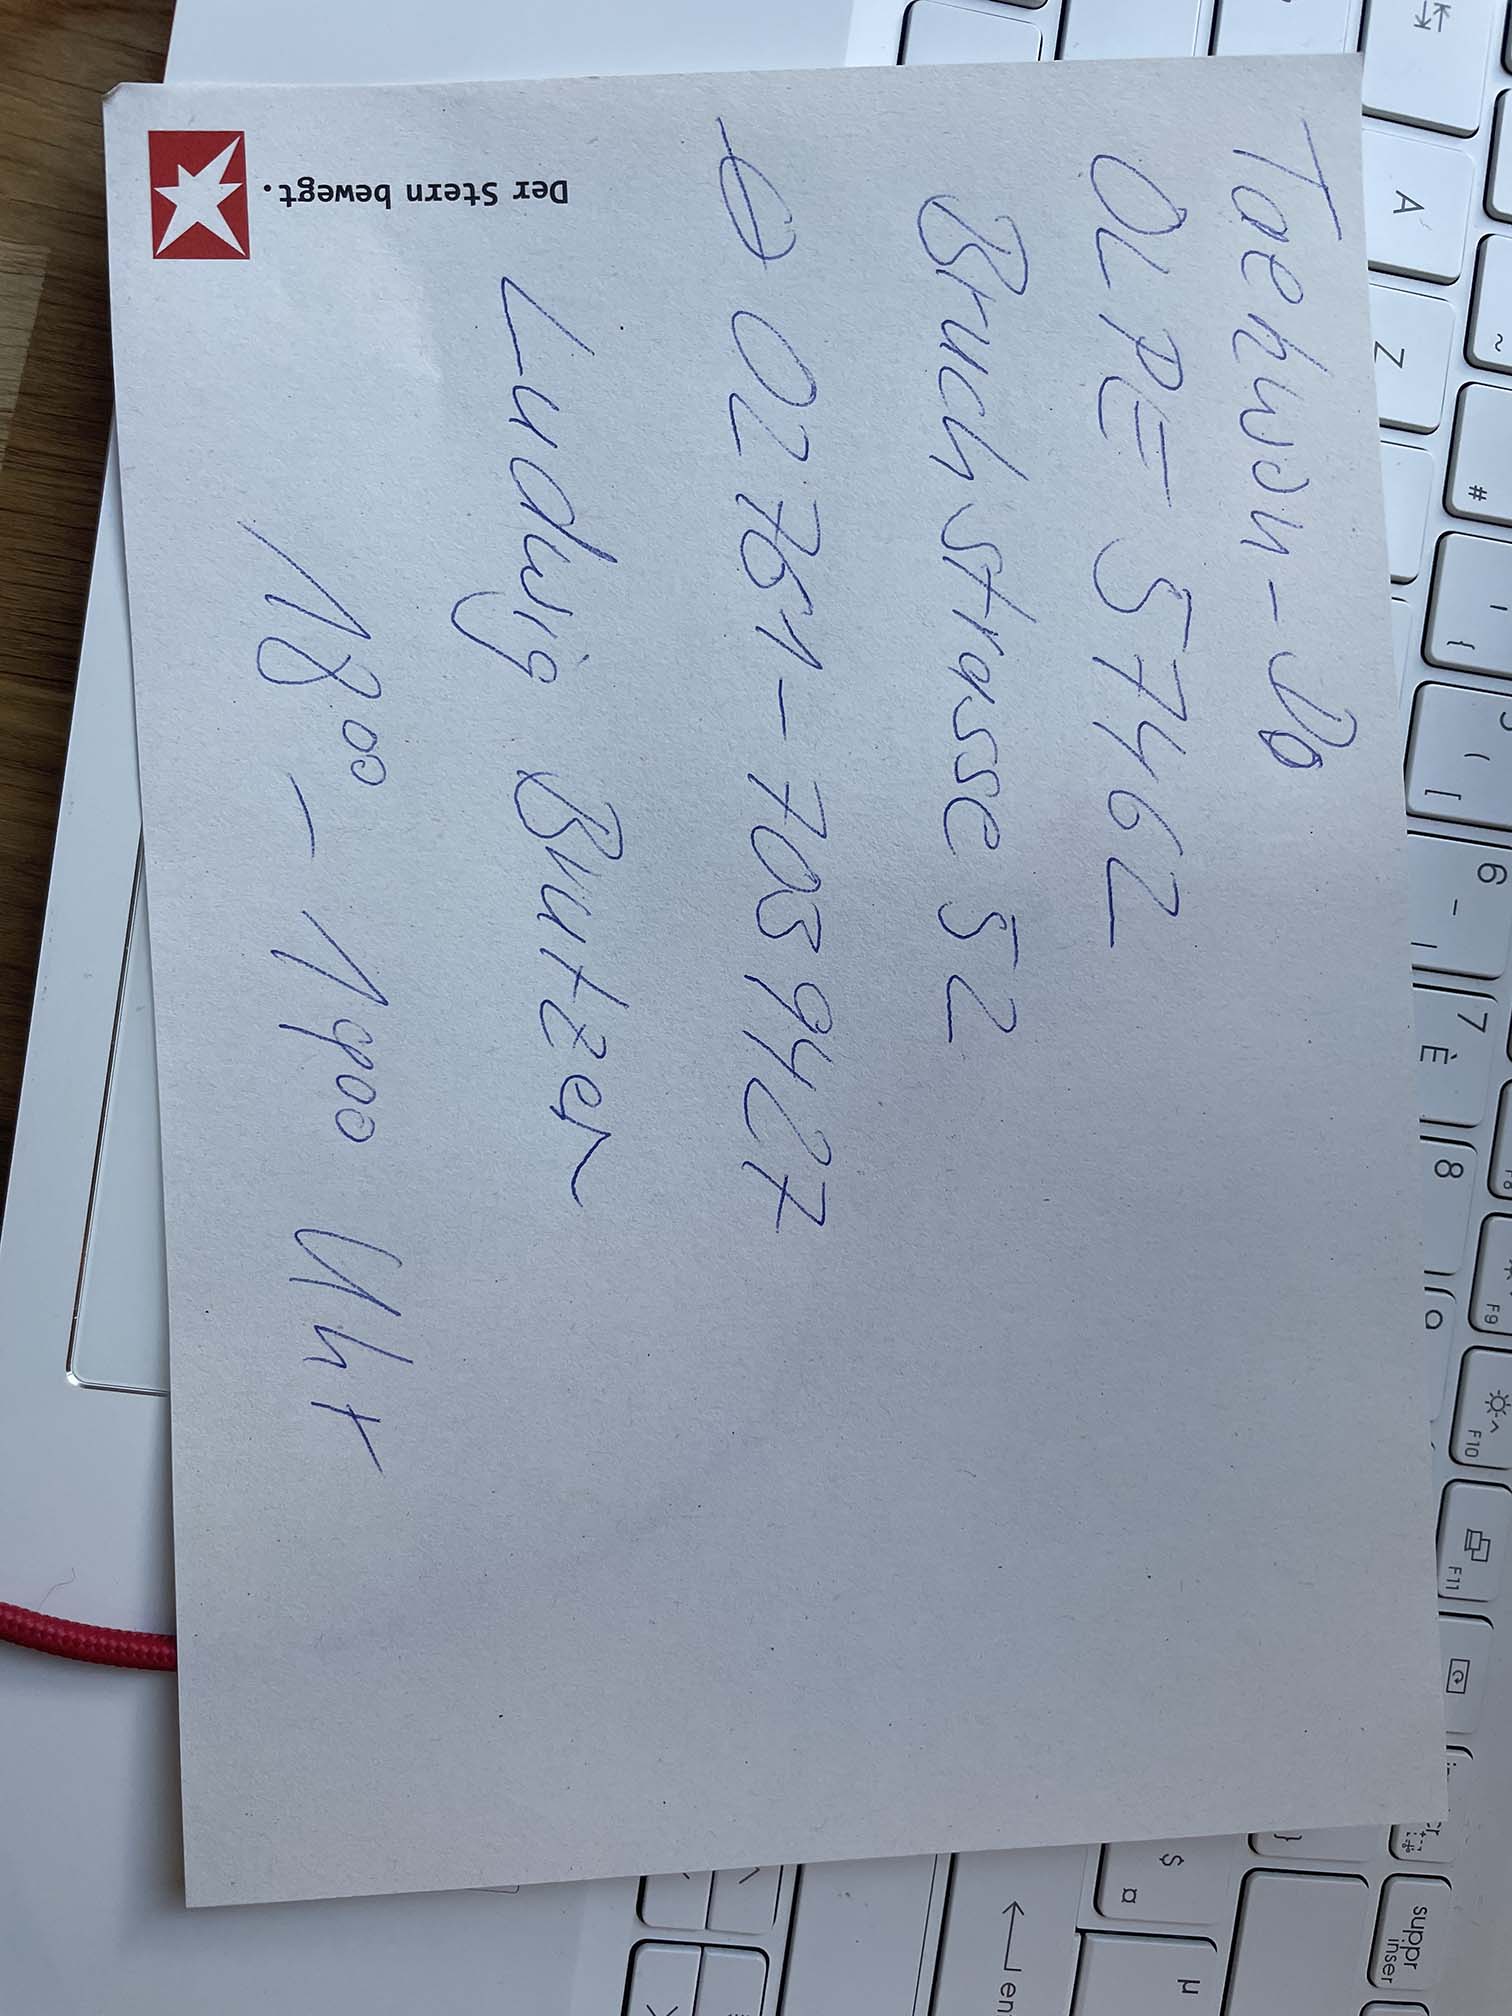 Taekwon-Do
OLPE 57462
Bruchstrasse 52
02761-7059427
Ludwig Brutzer
18⁰⁰ - 19⁰⁰ Uhr
Der Stern bewegt.
A
Z
~
#
{
(
[
6
-
7
È
8
F9
F10
F11
}
$
¤
µ
suppr
inser